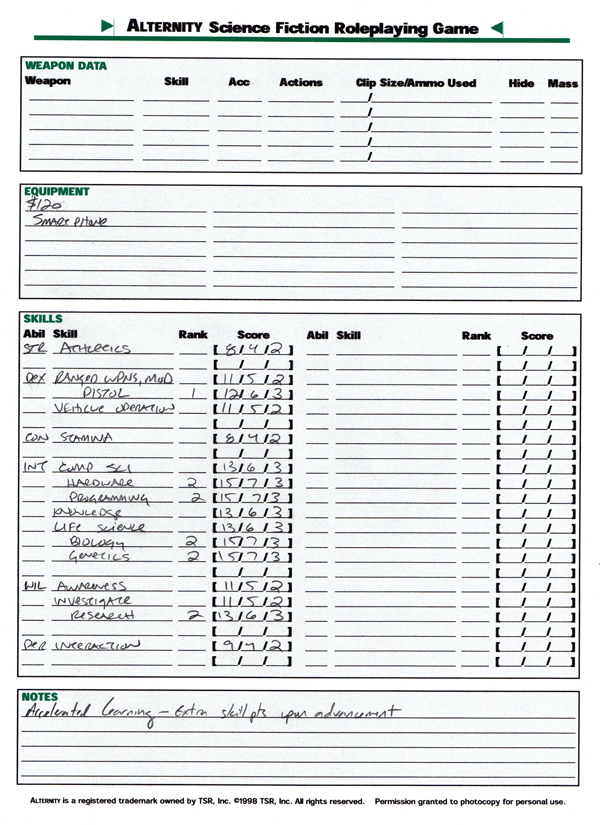 ALTERNITY Science Fiction Roleplaying Game
WEAPON DATA
Weapon Skill Acc Actions Clip Size/Ammo Used Hide Mass
/
/
/
/
/
EQUIPMENT
$120
SMART PHONE
SKILLS
Abil Skill Rank Score Abil Skill Rank Score
STR ATHLETICS [8/4/2] [ / / ]
[ / / ] [ / / ]
DEX RANGED WPNS, MOD [11/5/2] [ / / ]
PISTOL 1 [12/6/3] [ / / ]
VEHICLE OPERATION [11/5/2] [ / / ]
[ / / ] [ / / ]
CON STAMINA [8/4/2] [ / / ]
[ / / ] [ / / ]
INT COMP SCI [13/6/3] [ / / ]
HARDWARE 2 [15/7/3] [ / / ]
PROGRAMMING 2 [15/7/3] [ / / ]
KNOWLEDGE [13/6/3] [ / / ]
LIFE SCIENCE [13/6/3] [ / / ]
BIOLOGY 2 [15/7/3] [ / / ]
GENETICS 2 [15/7/3] [ / / ]
[ / / ] [ / / ]
WIL AWARENESS [11/5/2] [ / / ]
INVESTIGATE [11/5/2] [ / / ]
RESEARCH 2 [13/6/3] [ / / ]
[ / / ] [ / / ]
PER INTERACTION [9/4/2] [ / / ]
[ / / ] [ / / ]
NOTES
Accelerated Learning - Extra skill pts upon advancement
ALTERNITY is a registered trademark owned by TSR, Inc. ©1998 TSR, Inc. All rights reserved. Permission granted to photocopy for personal use.